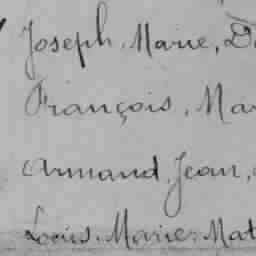 Joseph. Marie,
François, Mar
Armand, Jean,
Louis. Marie. Mat